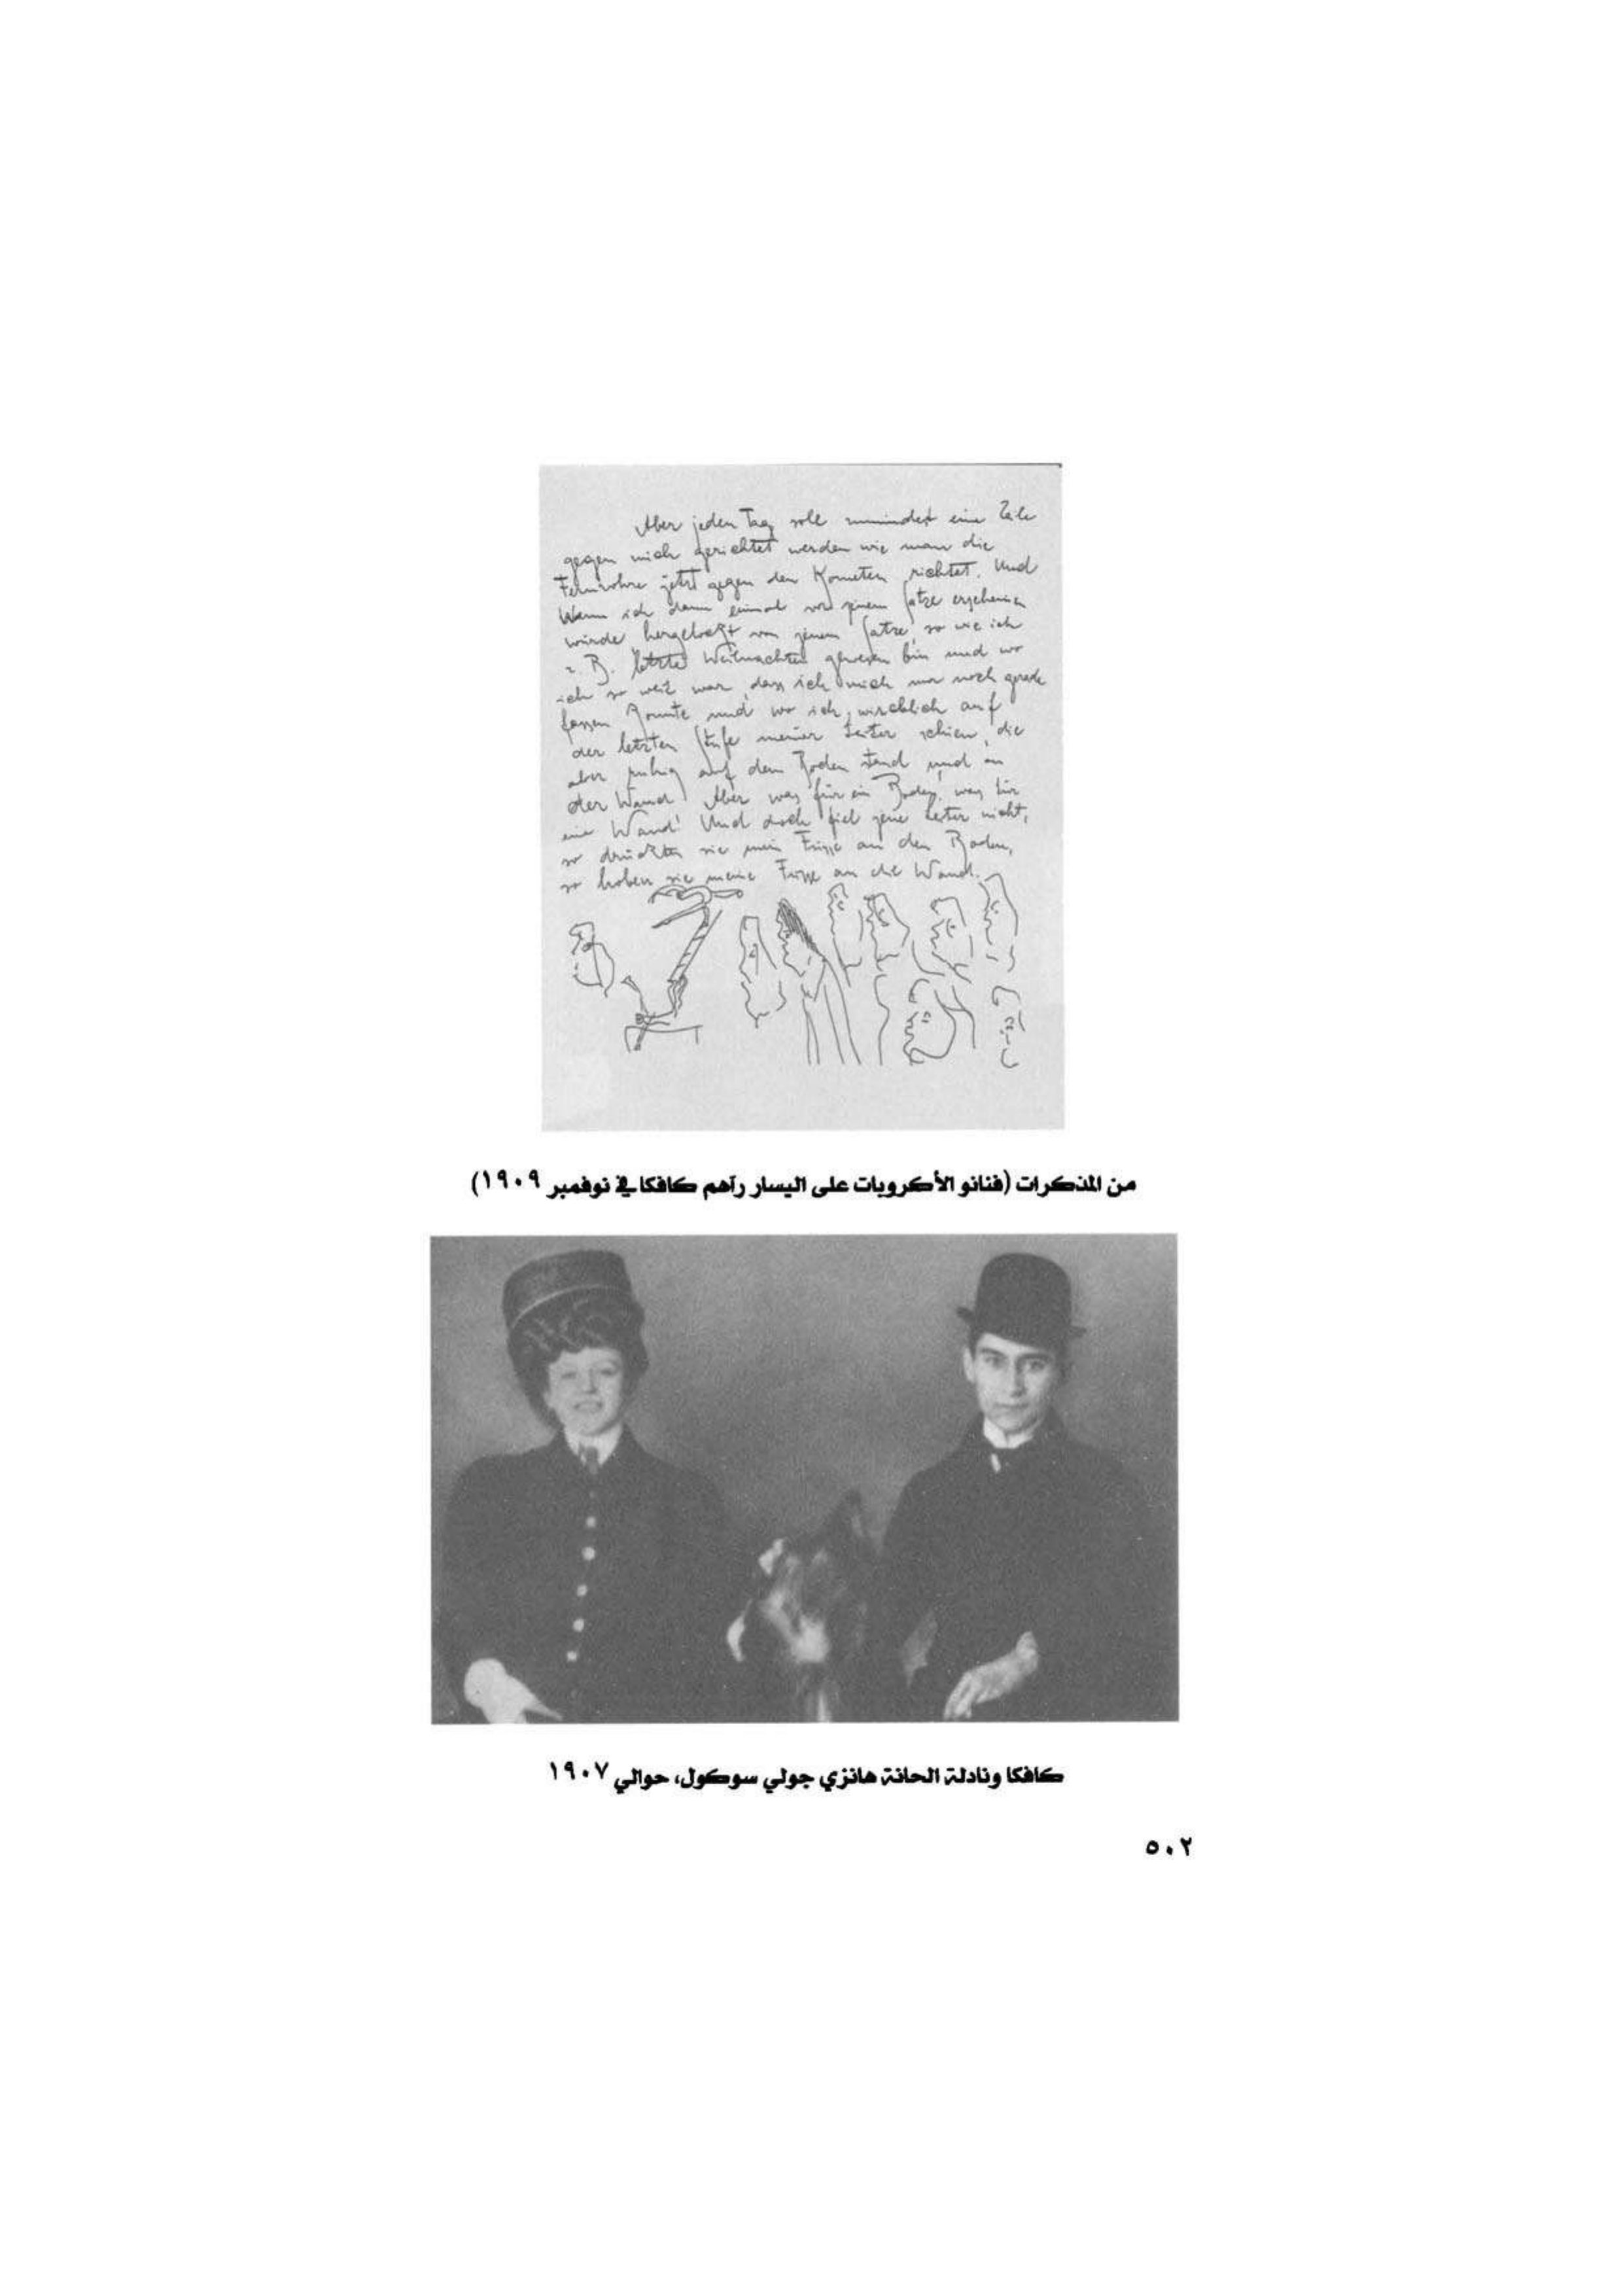 Aber jeden Tag soll zumindest eine Zeile
gegen mich gerichtet werden wie man die
Fernrohre jetzt gegen den Kometen richtet. Und
Wenn ich dann einmal vor jenem Satze erscheinen
würde hergelockt von jenem Satze, so wie ich
z. B. letzte Weihnachten gewesen bin und wo
ich so weit war, dass ich mich nur noch gerade
fassen konnte und wo ich wirklich auf
der letzten Stufe meiner Leiter schien, die
aber ruhig auf dem Boden stand und an
der Wand. Aber was für ein Boden, was für
eine Wand! Und doch fiel jene Leiter nicht,
so drückten sie meine Füsse an den Boden,
so hoben sie meine Füsse an die Wand.
من المذكرات (فنانو الأكروبات على اليسار رآهم كافكا في نوفمبر ١٩٠٩)
كافكا ونادلة الحانة هانزي جولي سوكول، حوالي ١٩٠٧
٥٠٢